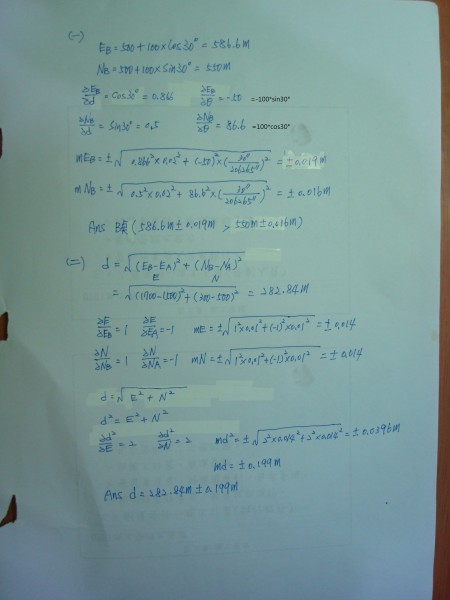 (一)
E_B = 500 + 100 × Cos30° = 586.6m
N_B = 500 + 100 × Sin30° = 550m
∂E_B/∂d = Cos30° = 0.866   ∂E_B/∂θ = -50   =-100*sin30°
∂N_B/∂d = Sin30° = 0.5   ∂N_B/∂θ = 86.6   =100*cos30°
mE_B = ± √(0.866² × 0.02² + (-50)² × (30"/206265")²) = ± 0.019m
mN_B = ± √(0.5² × 0.02² + 86.6² × (30"/206265")²) = ± 0.016m
Ans B點 (586.6m ± 0.019m , 550m ± 0.016m)
(二) d = √((E_B-E_A)² + (N_B-N_A)²)
E   N
= √((1700-1500)² + (300-500)²) = 282.84m
∂E/∂E_B = 1   ∂E/∂E_A = -1   mE = ± √(1² × 0.01² + (-1)² × 0.01²) = ± 0.014
∂N/∂N_B = 1   ∂N/∂N_A = -1   mN = ± √(1² × 0.01² + (-1)² × 0.01²) = ± 0.014
d = √(E² + N²)
d² = E² + N²
∂d²/∂E = 2   ∂d²/∂N = 2   md² = ± √(2² × 0.014² + 2² × 0.014²) = ± 0.0396m
md = ± 0.199m
Ans d = 282.84m ± 0.199m